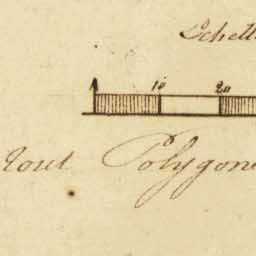 Echell
10 20
tout Polygone